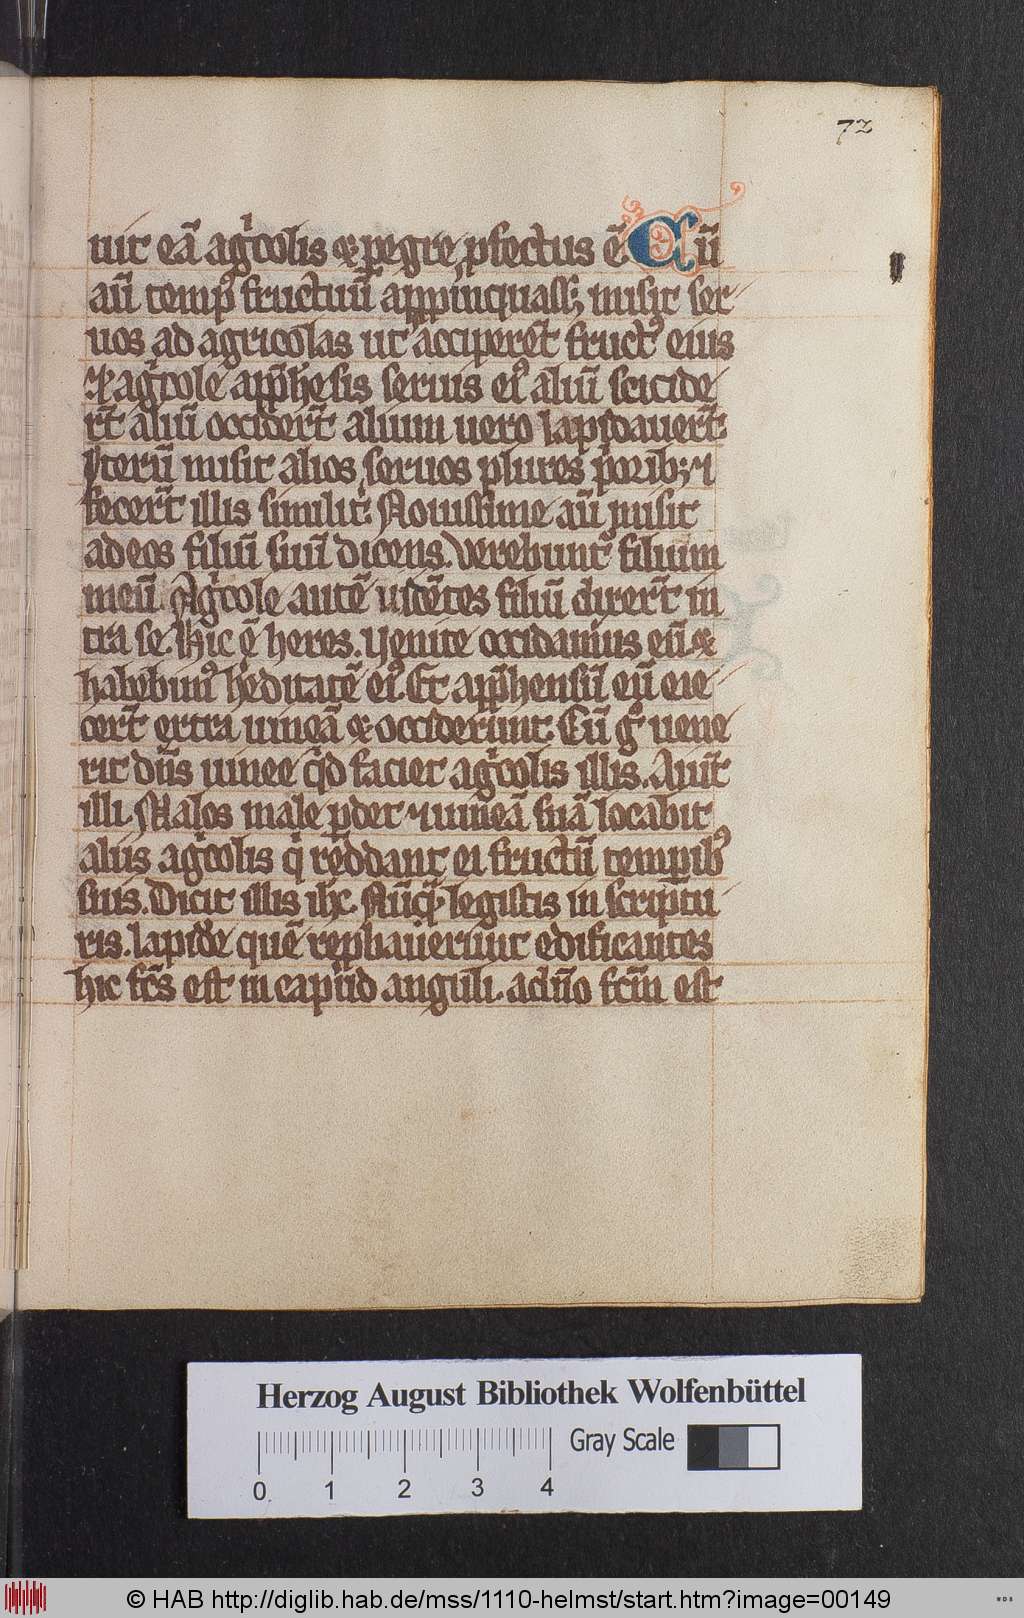 72
uit eā ag͛colis ⁊ pegre ꝓfectus ē Cū
aū temp᷒ fructuū apꝓpinquass; misit ser
uos ad agricolas ut acciperēt fruct᷒ eius
Et ag͛cole app̄hesis seruis ei᷒ aliū scicide
rt̄ aliū occidert̄ alium uero lapidauert̄.
Iterū misit alios seruos plures p͛orib; ⁊
fecert̄ illis similit͛. Nouissime aū misit
ad eos filiū suū dicens. Verebunt᷒ filium
meū. Ag͛cole autē uidētes filiū dixert̄ in
tra se. Hic ē heres. Venite occidamus eū. ⁊
habebim᷒ h̓editatē ei᷒. Et app̄hensū eū eie
cert̄ extra uineā ⁊ occiderunt. Cū g͛ uene
rit dn̄s uinee q͛d faciet ag͛colis illis. Aiūt
illi. Malos male ꝑdet ⁊ uineā suā locabit
aliis ag͛colis q͛ reddant ei fructū temporib᷒
suis. Dicit illis ihc. Nūq̄ legistis in scriptu
ris. lapidē quē reprhauerunt edificantes
hic fc̄s est in caput anguli. a dn̄o fc̄m est
Herzog August Bibliothek Wolfenbüttel
Gray Scale
0 1 2 3 4
© HAB http://diglib.hab.de/mss/1110-helmst/start.htm?image=00149